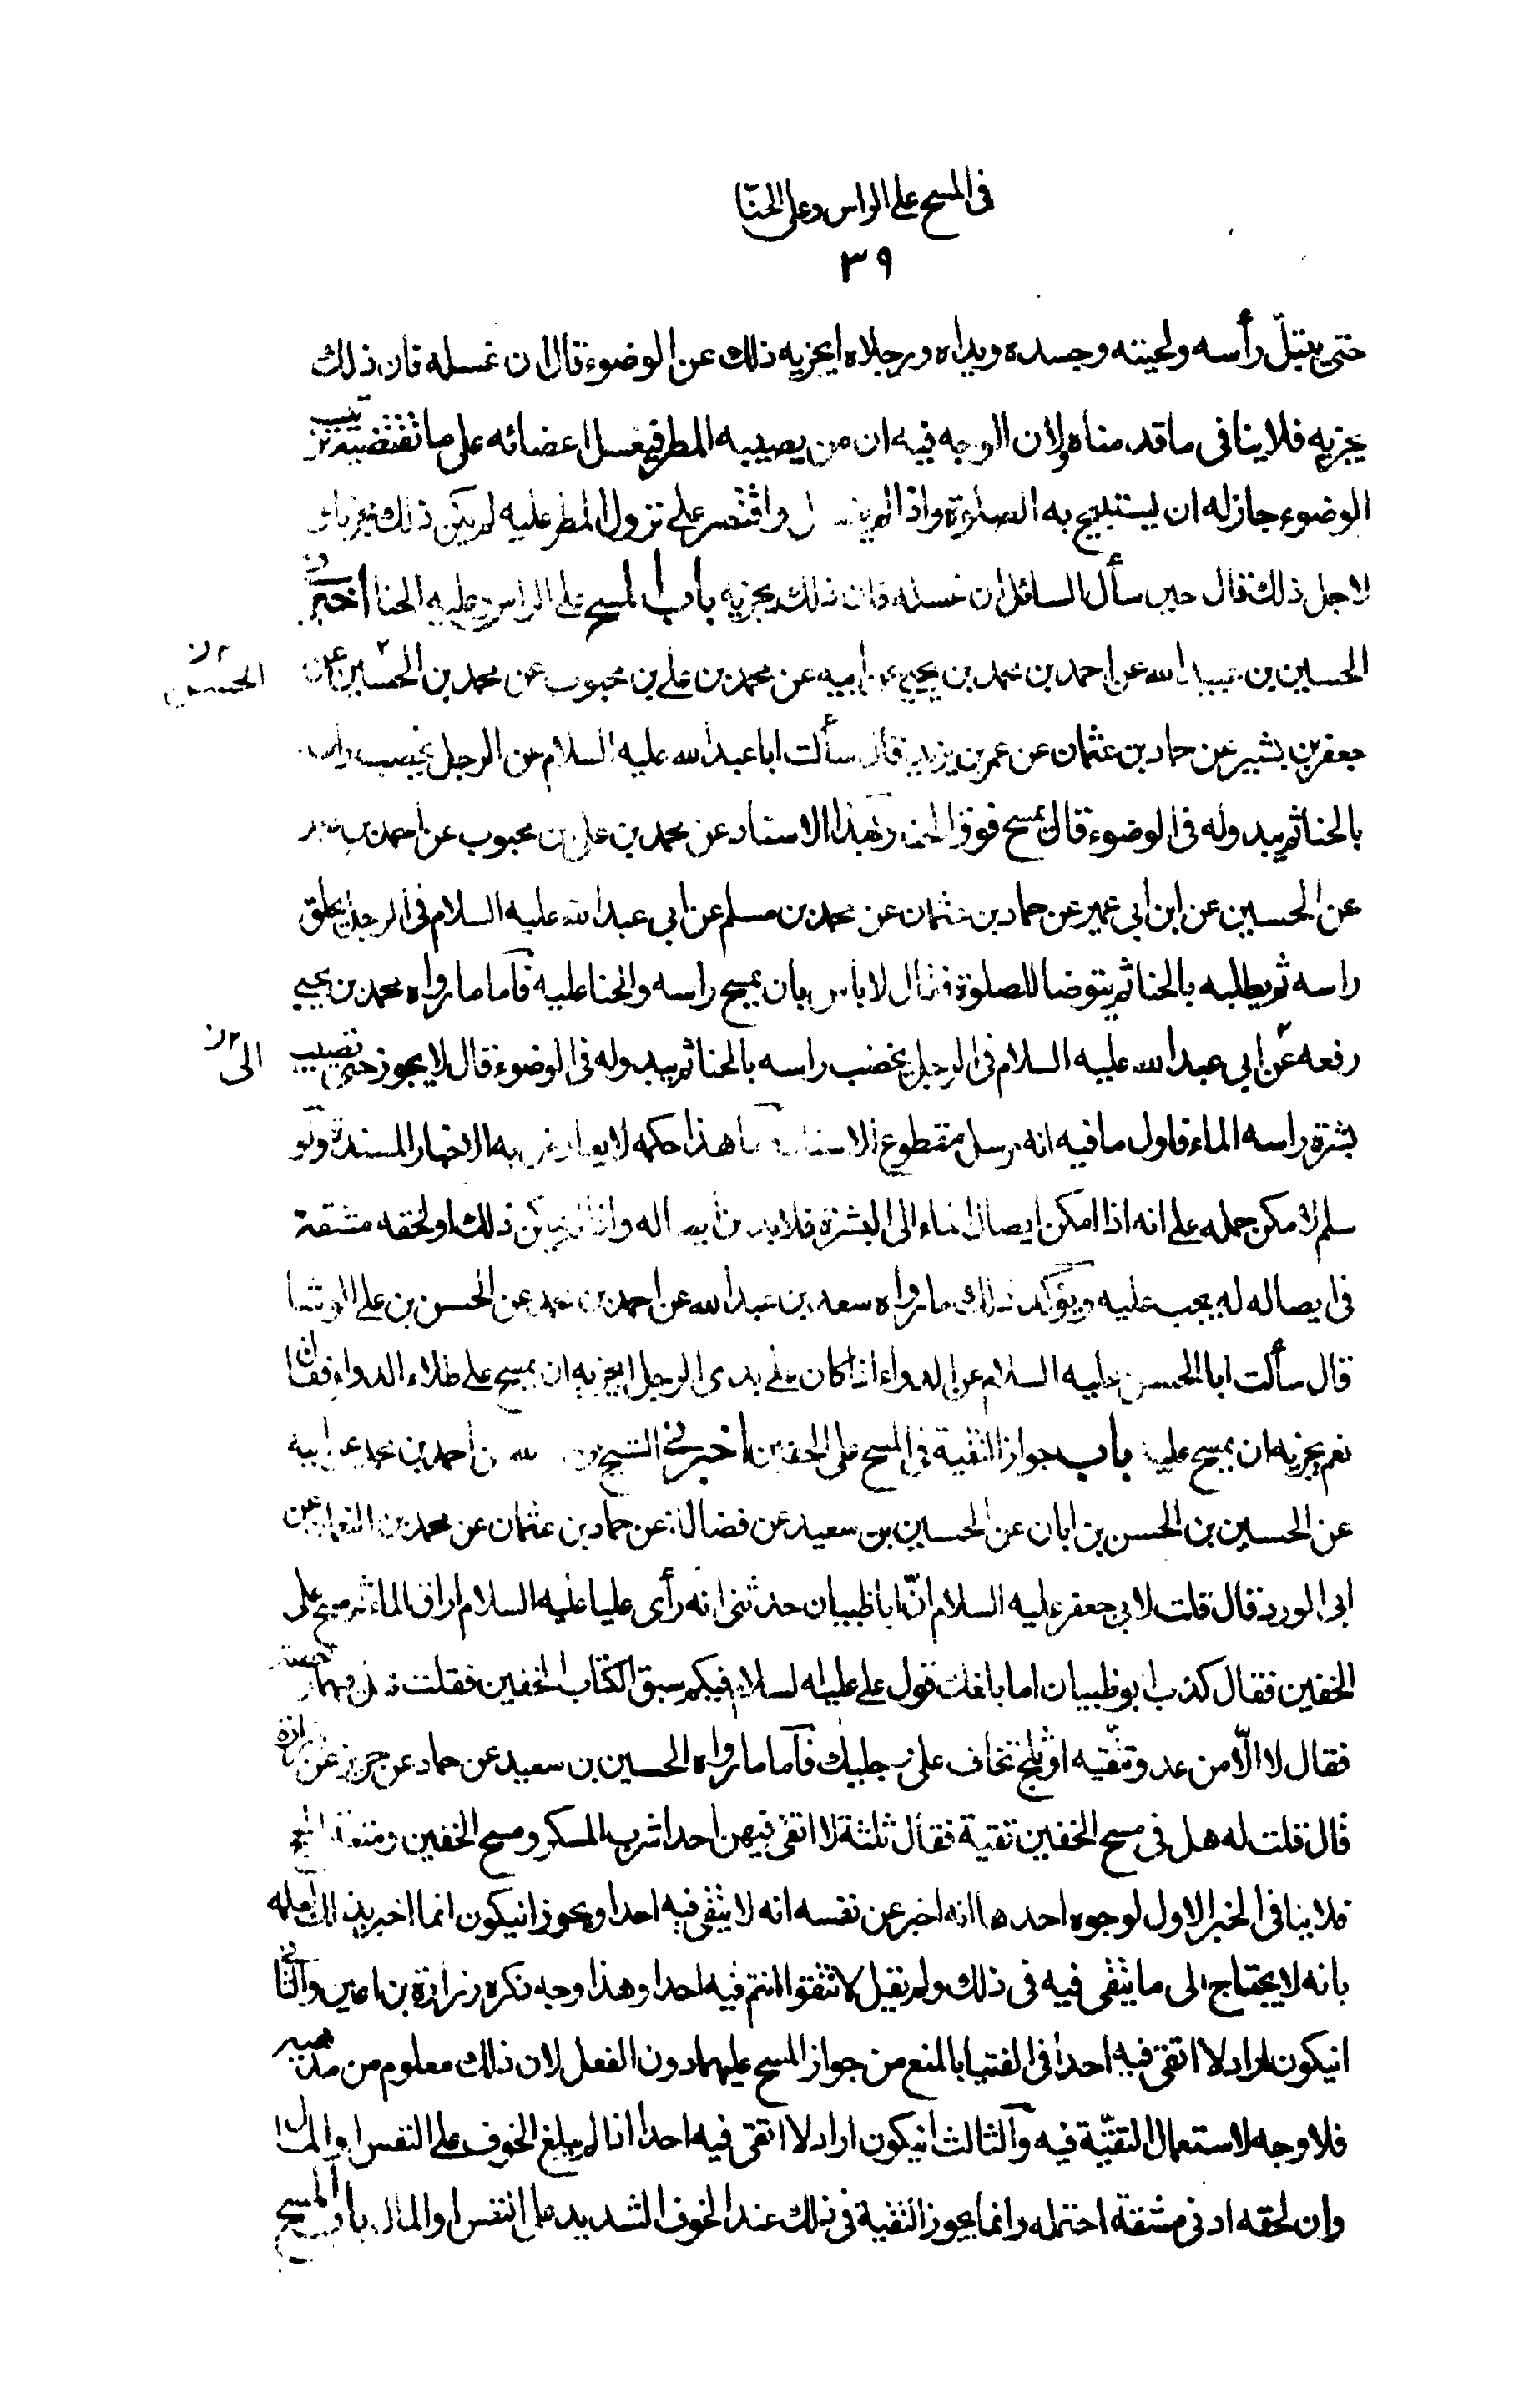 في المسح على الراس وعلى الحنّا
٣٩
حتى يبتلّ رأسه ولحيته وجسده ويداه ورجلاه ايجزيه ذلك عن الوضوء قال ان غسله فان ذلك
يجزيه فلا ينافى ما قدمناه لان الوجه فيه ان من يصيبه المطر فيغسل اعضائه على ما تقتضيه ترتيب
الوضوء جاز له ان يستبيح به الصلوة واذا لم يغسل واقتصر على نزول المطر عليه لم يكن ذلك مجزيا و
لاجل ذلك قال حين سأل السائل ان غسله فان ذلك يجزيه باب المسح على الراس وعليه الحنا أخبرني
الحسين بن عبيد الله عن احمد بن محمد بن يحيى عن ابيه عن محمد بن على بن محبوب عن محمد بن الحسين عن
الحسن
جعفر بن بشير عن حماد بن عثمان عن عمر بن يزيد قال سألت ابا عبد الله عليه السلام عن الرجل يخضب راسه
بالحنا ثم يبدو له فى الوضوء قال يمسح فوق الحنا وبهذا الاسناد عن محمد بن على بن محبوب عن احمد بن محمد
عن الحسين عن ابن ابى عمير عن حماد بن عثمان عن محمد بن مسلم عن ابى عبد الله عليه السلام فى الرجل يحلق
راسه ثم يطليه بالحنا ثم يتوضا للصلوة فقال لا باس بان يمسح راسه والحنا عليه فأما ما رواه محمد بن يحيى
رفعه عن ابى عبد الله عليه السلام فى الرجل يخضب راسه بالحنا ثم يبدو له فى الوضوء قال لا يجوز حتى تصيب
الى
بشرة راسه الماء فاول ما فيه انه مرسل مقطوع الاسناد وما هذا حكمه لا يعارض به الاخبار المسندة ولو
سلم لامكن حمله على انه اذا امكن ايصال الماء الى البشرة فلا بد من ايصاله واذا لم يمكن ذلك او لحقه مشقة
فى ايصاله لم يجب عليه ويؤكد ذلك ما رواه سعد بن عبد الله عن احمد بن محمد عن الحسن بن على الوشا
قال سألت ابا الحسن عليه السلام عن الدواء اذا كان على يدى الرجل ايجزيه ان يمسح على طلاء الدواء فقال
نعم يجزيه ان يمسح عليه باب جواز التقية فى المسح على الخفين اخبرني الشيخ احمد بن محمد عن ابيه
عن الحسين بن الحسن بن ابان عن الحسين بن سعيد عن فضالة عن حماد بن عثمان عن محمد بن النعمان عن
ابى الورد قال قلت لابى جعفر عليه السلام انّ ابا ظبيان حدثنى انه رأى عليا عليه السلام اراق الماء ثم مسح على
الخفين فقال كذب ابو ظبيان اما بلغك قول على عليه السلام فيكم سبق الكتاب الخفين فقلت فهل فيهما رخصة
فقال لا الّا من عدو تتّقيه او ثلج تخاف على رجليك فأما ما رواه الحسين بن سعيد عن حماد عن حريز عن زرارة
قال قلت له هل فى مسح الخفين تقية فقال ثلثة لا اتقى فيهن احدا شرب المسكر ومسح الخفين ومتعة الحج
فلا ينافى الخبر الاول لوجوه احدها انه اخبر عن نفسه انه لا يتقى فيه احدا ويجوز ان يكون انما اخبر بذلك لعلمه
بانه لا يحتاج الى ما يتقى فيه فى ذلك ولم يقل لا تتقوا انتم فيه احدا وهذا وجه ذكره زرارة بن اعين والثاني
ان يكون اراد لا اتقى فيه احدا فى الفتيا بالمنع من جواز المسح عليهما دون الفعل لان ذلك معلوم من مذهبه
فلا وجه لاستعمال التقيّة فيه والثالث ان يكون اراد لا اتقى فيه احدا اذا لم يبلغ الخوف على النفس او المال
وان لحقه ادنى مشقة احتمله وانما يجوز التقية فى ذلك عند الخوف الشديد على النفس او المال باب المسح